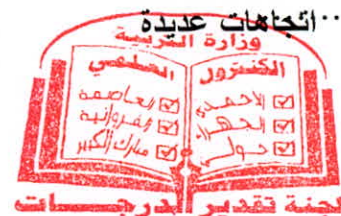 ..اتجاهات عديدة
وزارة التربية
الكنترول العلمي
الأحمدي
الجهراء
حولي
العاصمة
الفروانية
مبارك الكبير
لجنة تقدير الدرجات